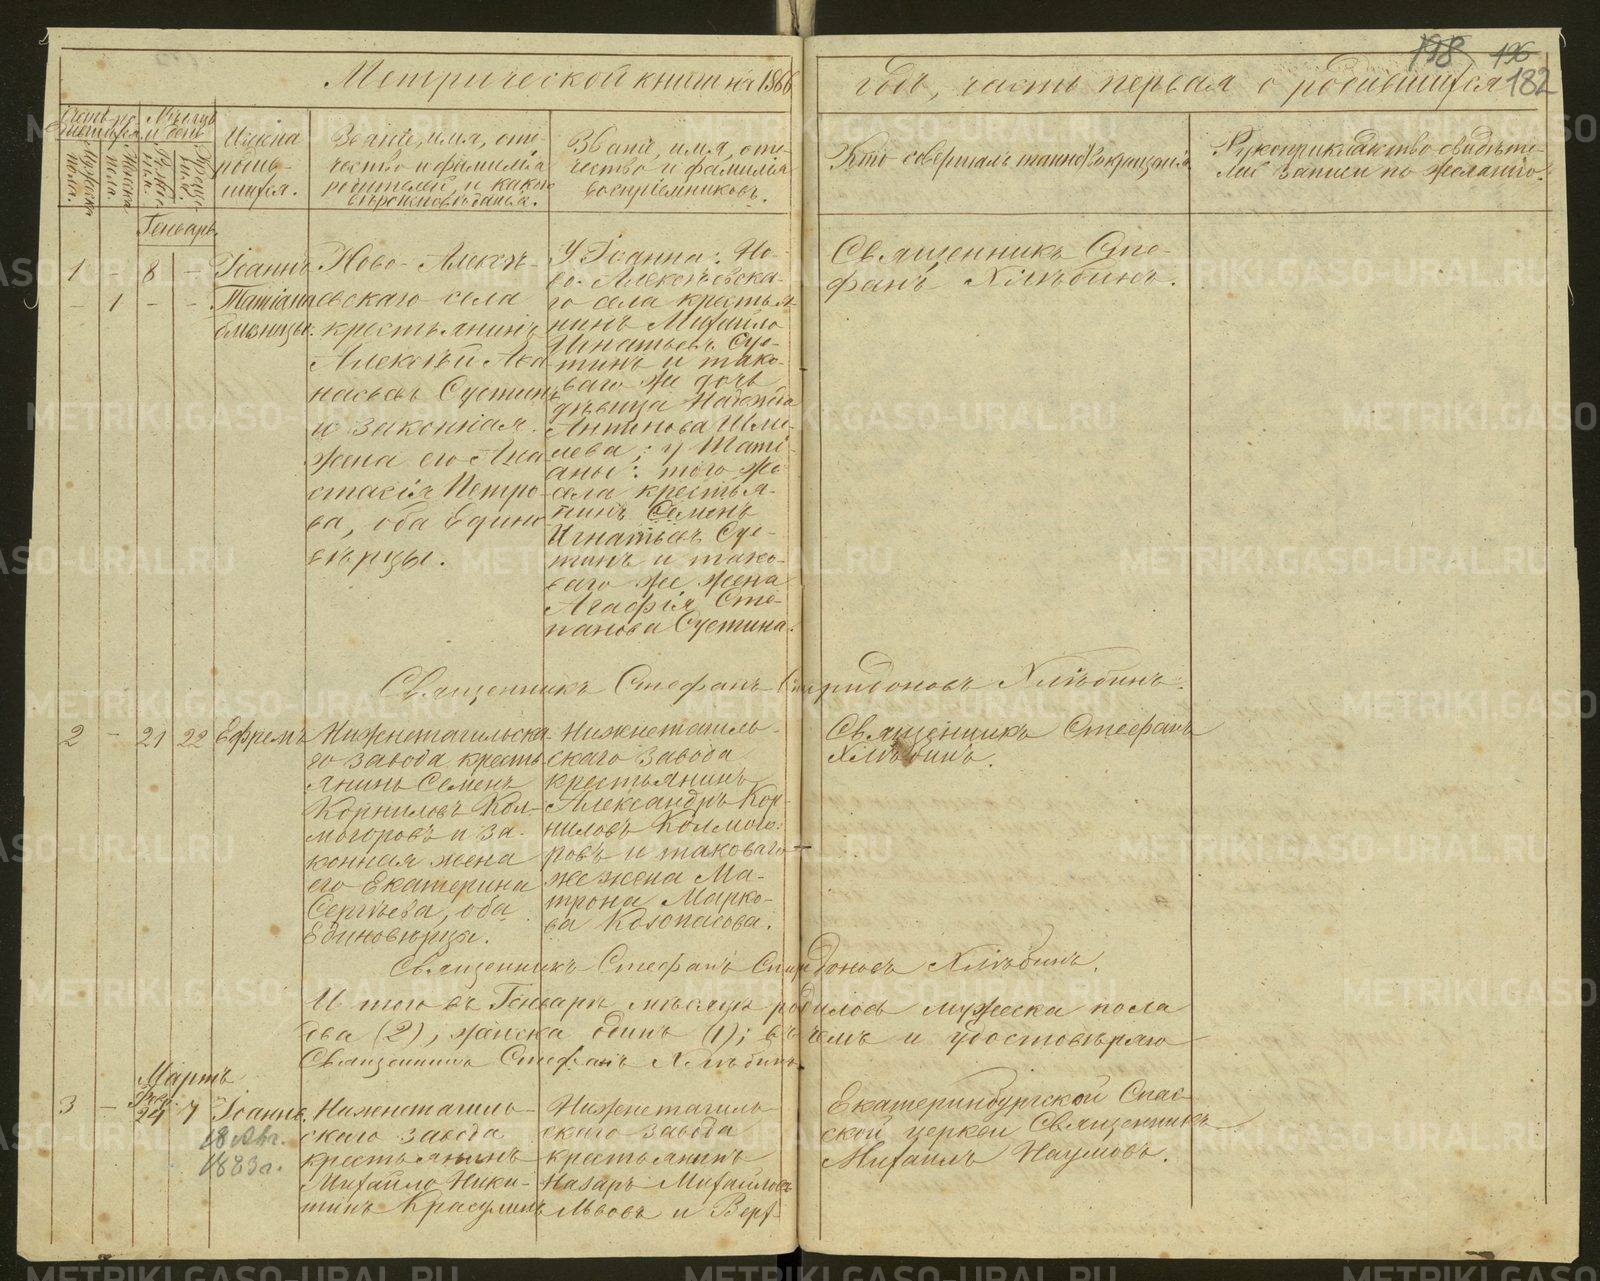 198 196
182
Метрической книги на 1866
годъ, часть первая о родившихся
Счетъ ро-
дившихся.
Мѣсяцъ
и день
Мужеска
пола.
Женска
пола.
Рожде-
нія.
Креще-
нія.
Имена
родив-
шихся.
Званіе, имя, оте-
чество и фамилія
родителей, и какого
вѣроисповѣданія.
Званіе, имя, оте-
чество и фамилія
воспріемниковъ.
Кто совершалъ таинство крещенія.
Рукоприкладство свидѣте-
лей записи по желанію.
Генварь.
1 - 8 -
- 1 - -
Іоаннъ
Татіана
близнецы.
Ново-Алексѣ-
евскаго села
крестьянинъ
Алексѣй Аѳа-
насьевъ Сустинъ
и законная
жена его Ана-
стасія Петро-
ва, оба Едино-
вѣрцы.
У Іоанна: Но-
во-Алексѣевска-
го села крестья-
нинъ Михайло
Игнатьевъ Сус-
тинъ и тако-
ваго же дочь
дѣвица Надежда
лева; у Тати-
аны: того же
села крестья-
нинъ Семенъ
Игнатьевъ Сус-
тинъ и тако-
ваго же жена
Агафія Сте-
панова Сустина.
Священникъ Сте-
фанъ Хлѣбинъ.
Священникъ Стефанъ Спиридоновъ Хлѣбинъ.
2 - 21 22
Ефремъ
Нижнетагильска-
го завода кресть-
янинъ Семенъ
Корниловъ Кол-
могоровъ и за-
конная жена
его Екатерина
Сергѣева, оба
Единовѣрцы.
Нижнетагиль-
скаго завода
крестьянинъ
Александръ Кор-
ниловъ Колмого-
ровъ и таковаго
же жена Ма-
трона Марко-
ва Колопасова.
Священникъ Стефанъ
Хлѣбинъ.
Священникъ Стефанъ Спиридоновъ Хлѣбинъ.
И того въ Генварѣ мѣсяцѣ родилось мужеска пола
два (2), женска одинъ (1); въ чемъ и удостовѣряю
Священникъ Стефанъ Хлѣбинъ
Мартъ
3 - Фев. 24 7
Іоаннъ.
18 Авг.
1883 г.
Нижнетагиль-
скаго завода
крестьянинъ
Михайло Ники-
тинъ Красулинъ
Нижнетагиль-
скаго завода
крестьянинъ
Назаръ Михайловъ
Львовъ и Верх-
Екатеринбургской Спас-
ской церкви Священникъ
Михаилъ Наумовъ.
METRIKI.GASO-URAL.RU